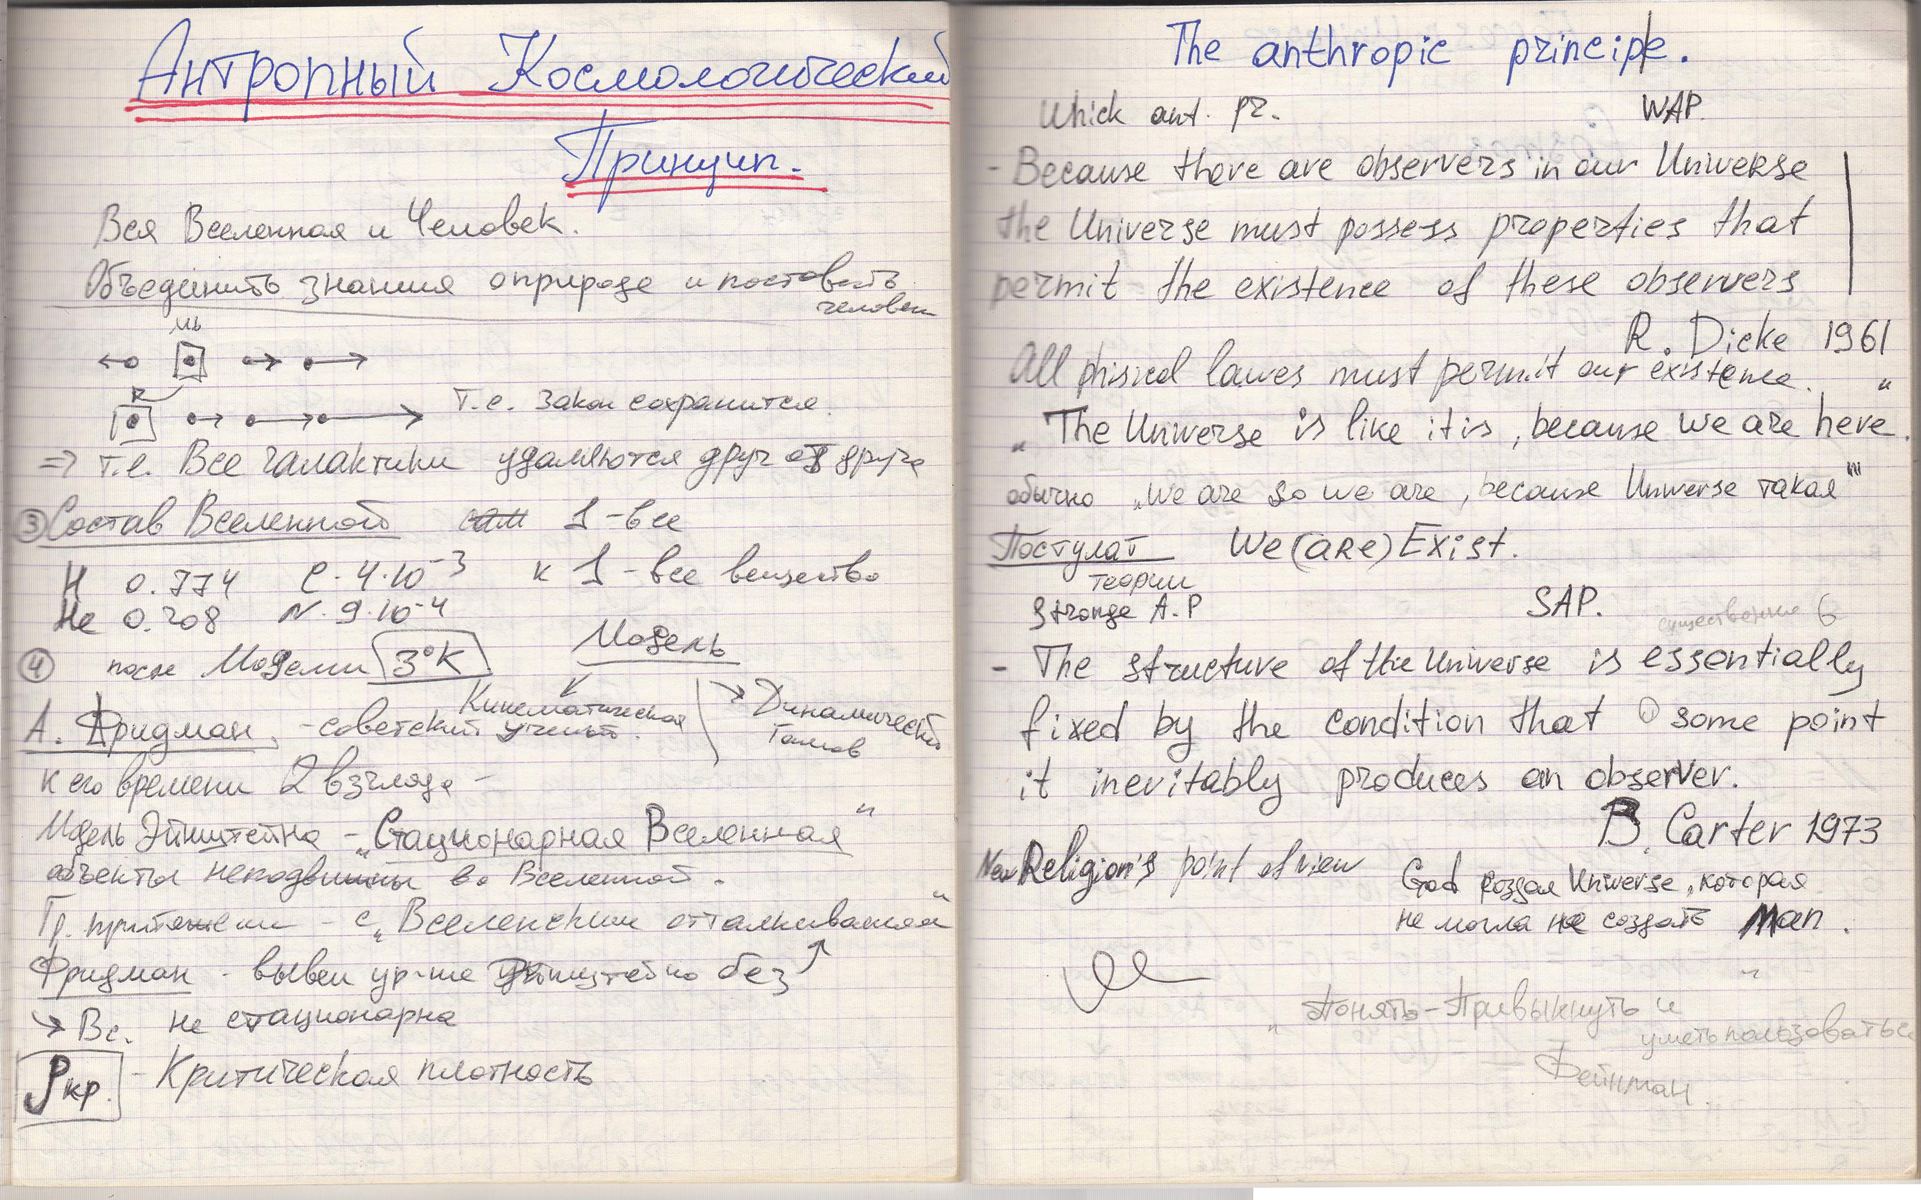 Антропный Космологический
Принцип.
Вся Вселенная и Человек.
Объединить знания о природе и поставить
человек
мы
Т.е. Закон сохранится.
=> т.е. Все галактики удаляются друг от друга
③ Состав Вселенной 1 - все
H 0.774 C · 4·10⁻³ к 1 - все вещество
He 0.208 N · 9·10⁻⁴
Модель
④ после Модели 3°K
Кинематическая Динамический
А. Фридман, - советский ученый. Гамов
к его времени 2 взгляда -
Мдель Эйнштейна - „Стационарная Вселенная"
объекты неподвижны во Вселенной.
Гр. притяжени - с „Вселенским отталкиванием"
Фридман - вывел ур-ние Эйнштейна без
→ Вс. не стационарна
ρкр. - Критическая плотность
The anthropic principle.
Whick ant. pr. WAP.
- Because there are observers in our Universe
the Universe must possess properties that
permit the existence of these observers
R. Dicke 1961
All phisical lawes must permit our existence.
„The Universe is like it is, because we are here."
обычно „We are so we are, because Universe такая"
Постулат We (are) Exist.
теории
Stronge A.P SAP.
существенно
- The structure of the Universe is essentially
fixed by the condition that some point
it inevitably produces an observer.
B. Carter 1973
New Religion's point of view God создал Universe, которая
не могла не создать Man.
„Понять - Привыкнуть и
уметь пользоваться"
- Фейнман.